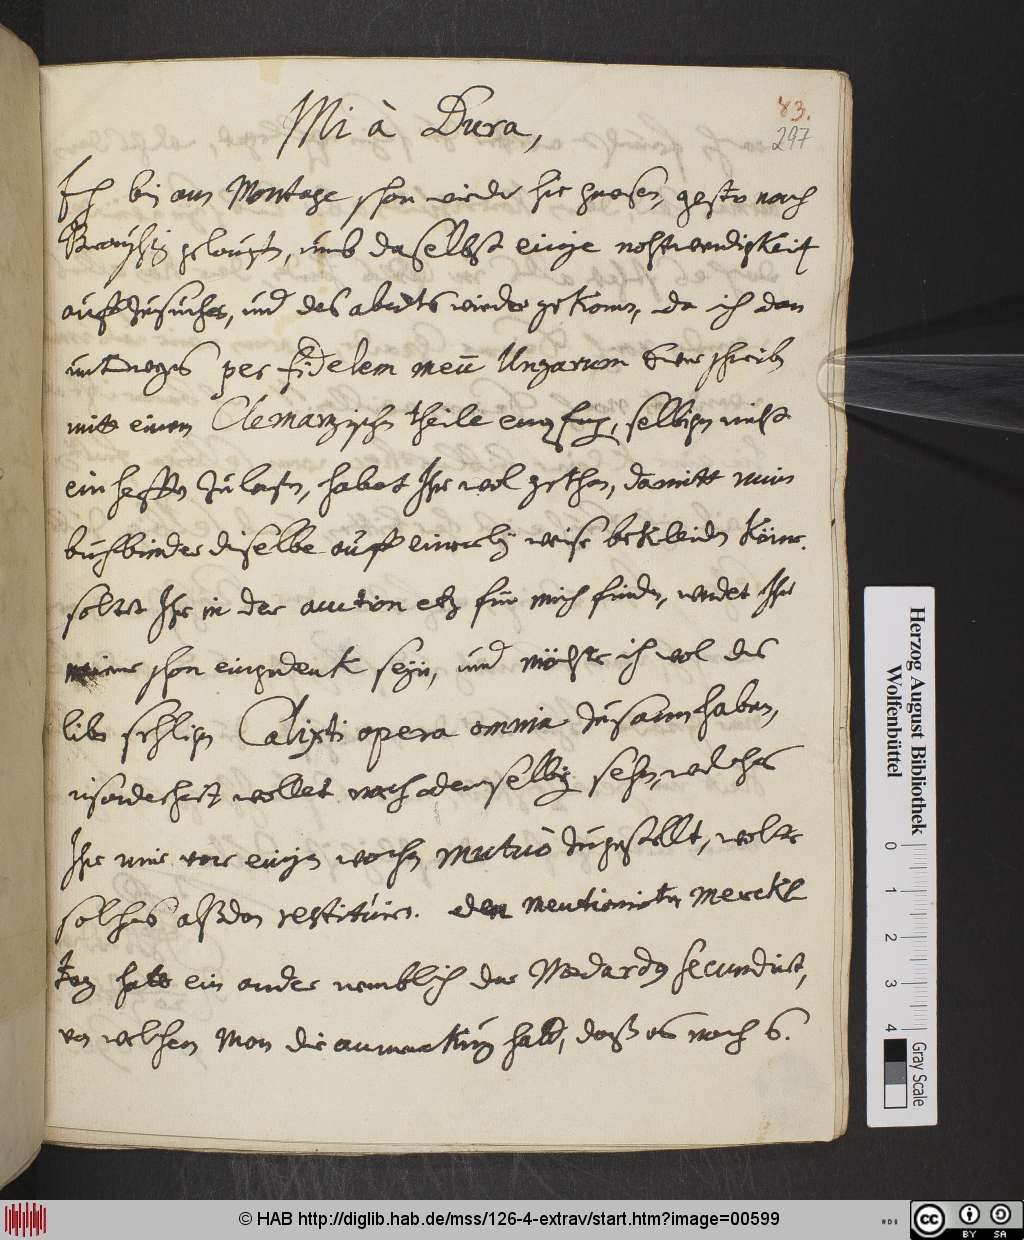 Mi à Dura,
83.
297
Ich bin am Montage schon wieder hie gewesen, gestern nach
gelanget, umb daselbst einige nohtwendigkeit
auffzusuchen, und des abendts wieder gekomen, da ich dan
unterweges per fidelem meum Ungarum Ewer schreiben
mitt einem theile empfing, selbigen nicht
einhefften zulassen, habet Ihr wol gethan, damitt mein
buchbinder dieselbe auff einerley weise bekleiden könne.
soltet Ihr in der auction etz für mich finden, werdet Ihr
meiner schon eingedenk seyn, und möchte ich wol des
lieben sehligen Calixti opera omnia zusamen haben,
insonderheit wollet nach demselbigen sehen, welches
Ihr mir vor einigen wochen mutuò zugestellt, wolte
solches alßdan restituiren. den mentionirten Merckl
tag hatt ein ander nemblich der Medardus secundirt,
von welchem Man die anmerkung hatt, daß es nach 6.
Herzog August Bibliothek
Wolfenbüttel
0 1 2 3 4
Gray Scale
© HAB http://diglib.hab.de/mss/126-4-extrav/start.htm?image=00599
cc BY SA